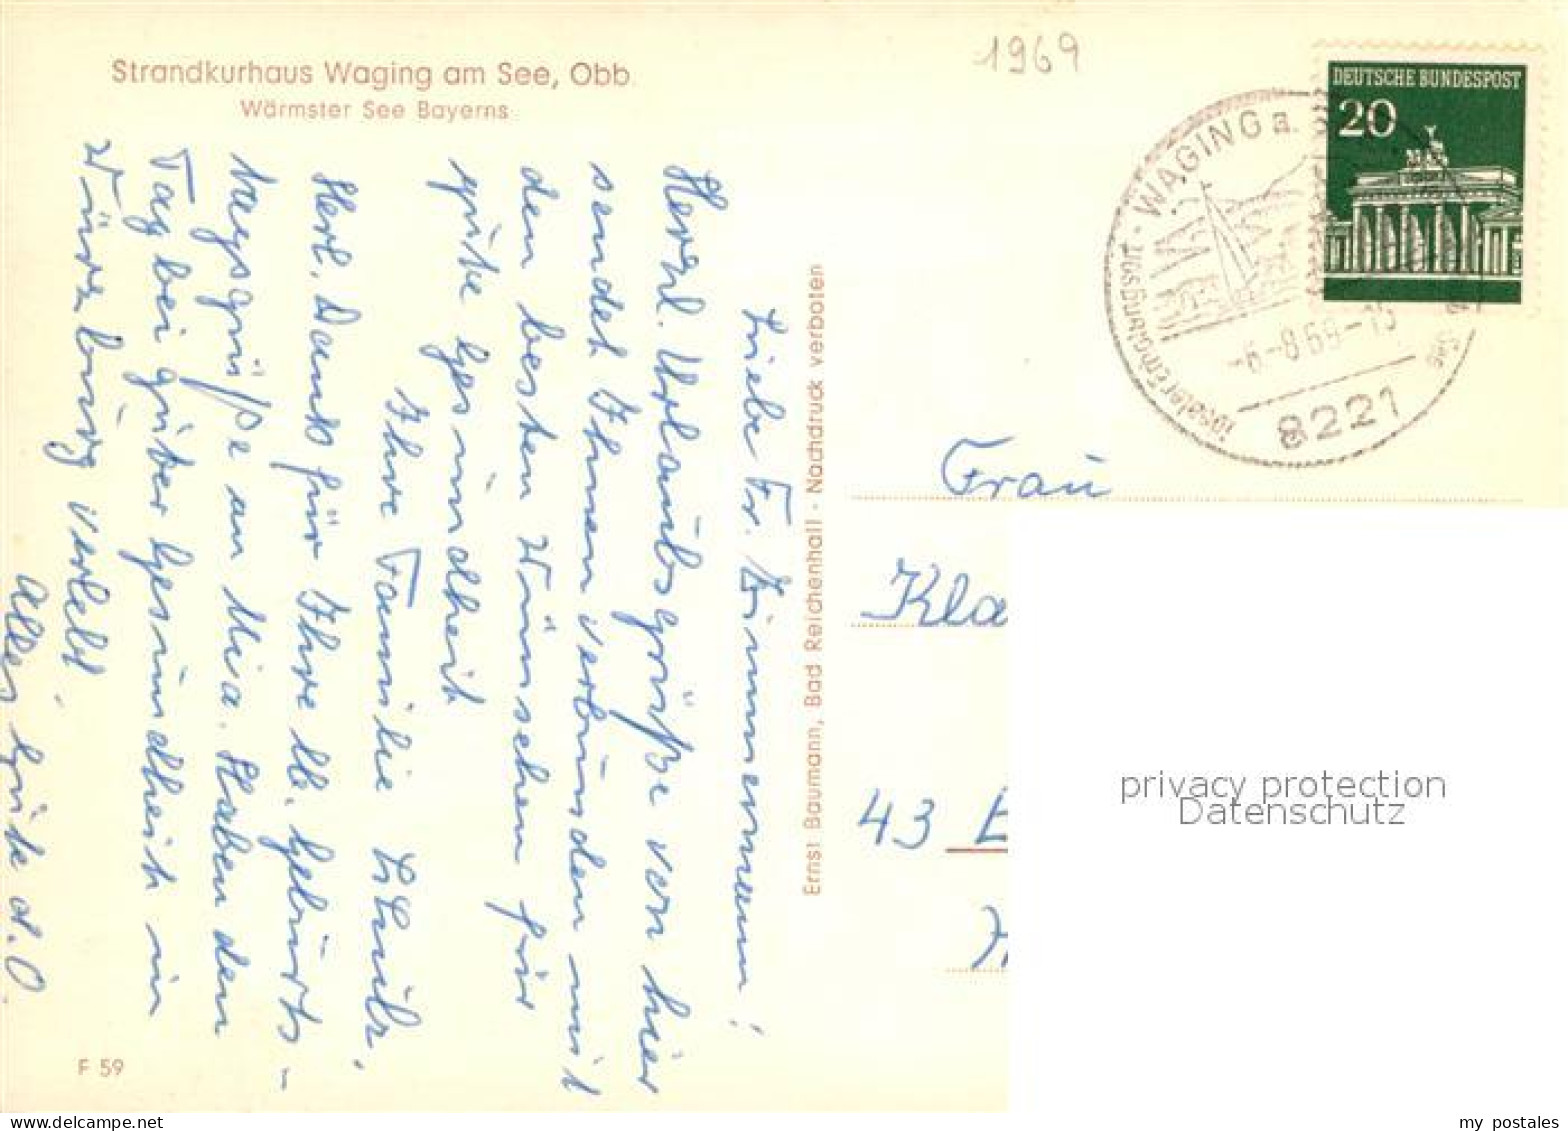 Strandkurhaus Waging am See, Obb.
Wärmster See Bayerns
1969
DEUTSCHE BUNDESPOST
20
WAGING a.
-6-8 69-15
8221
Liebe Fr. Zimmermann!
Herzl. Urlaubsgrüße von hier
sendet Ihnen verbunden mit
den besten Wünschen für
gute Gesundheit
Ihre Familie
Herl. Dank für Ihre lb. Geburts-
tagsgrüße an Mia. Haben den
Tag bei guter Gesundheit in
Würzburg verlebt.
Alles Gute d. O.
Ernst Baumann, Bad Reichenhall - Nachdruck verboten
Frau
Kla
43 E
F 59
privacy protection
Datenschutz
my postales